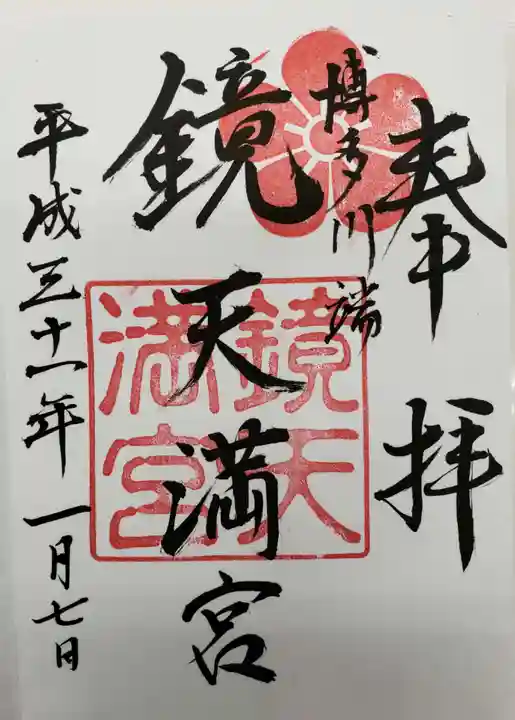 奉拝
博多川端
鏡天満宮
鏡天満宮
平成三十一年一月七日